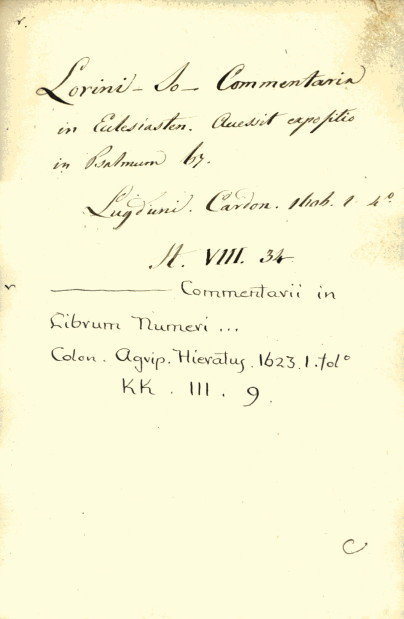 v.
Lorini - Jo - Commentaria
in Eclesiasten. Accessit expositio
in Psalmum 67.
Lugduni. Cardon. 1606. 1. 4º
A. VIII. 34
v ——— Commentarii in
Librum Numeri ...
Colon. Agrip. Hieratus. 1623. 1. folº
KK. III. 9.
C